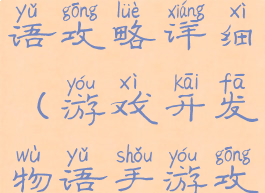 yǔ gōng lüè xiáng xì
语攻略详细
yóu xì kāi fā
（游戏开发
wù yǔ shǒu yóu gōng
物语手游攻